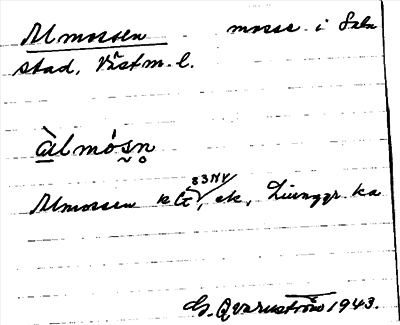 Almossen mosse i Sala
stad, Västm. l.
àlmósn
83 NV
Almossen k G, ek, Ljunggr. ka
G. Qvarnström 1943.